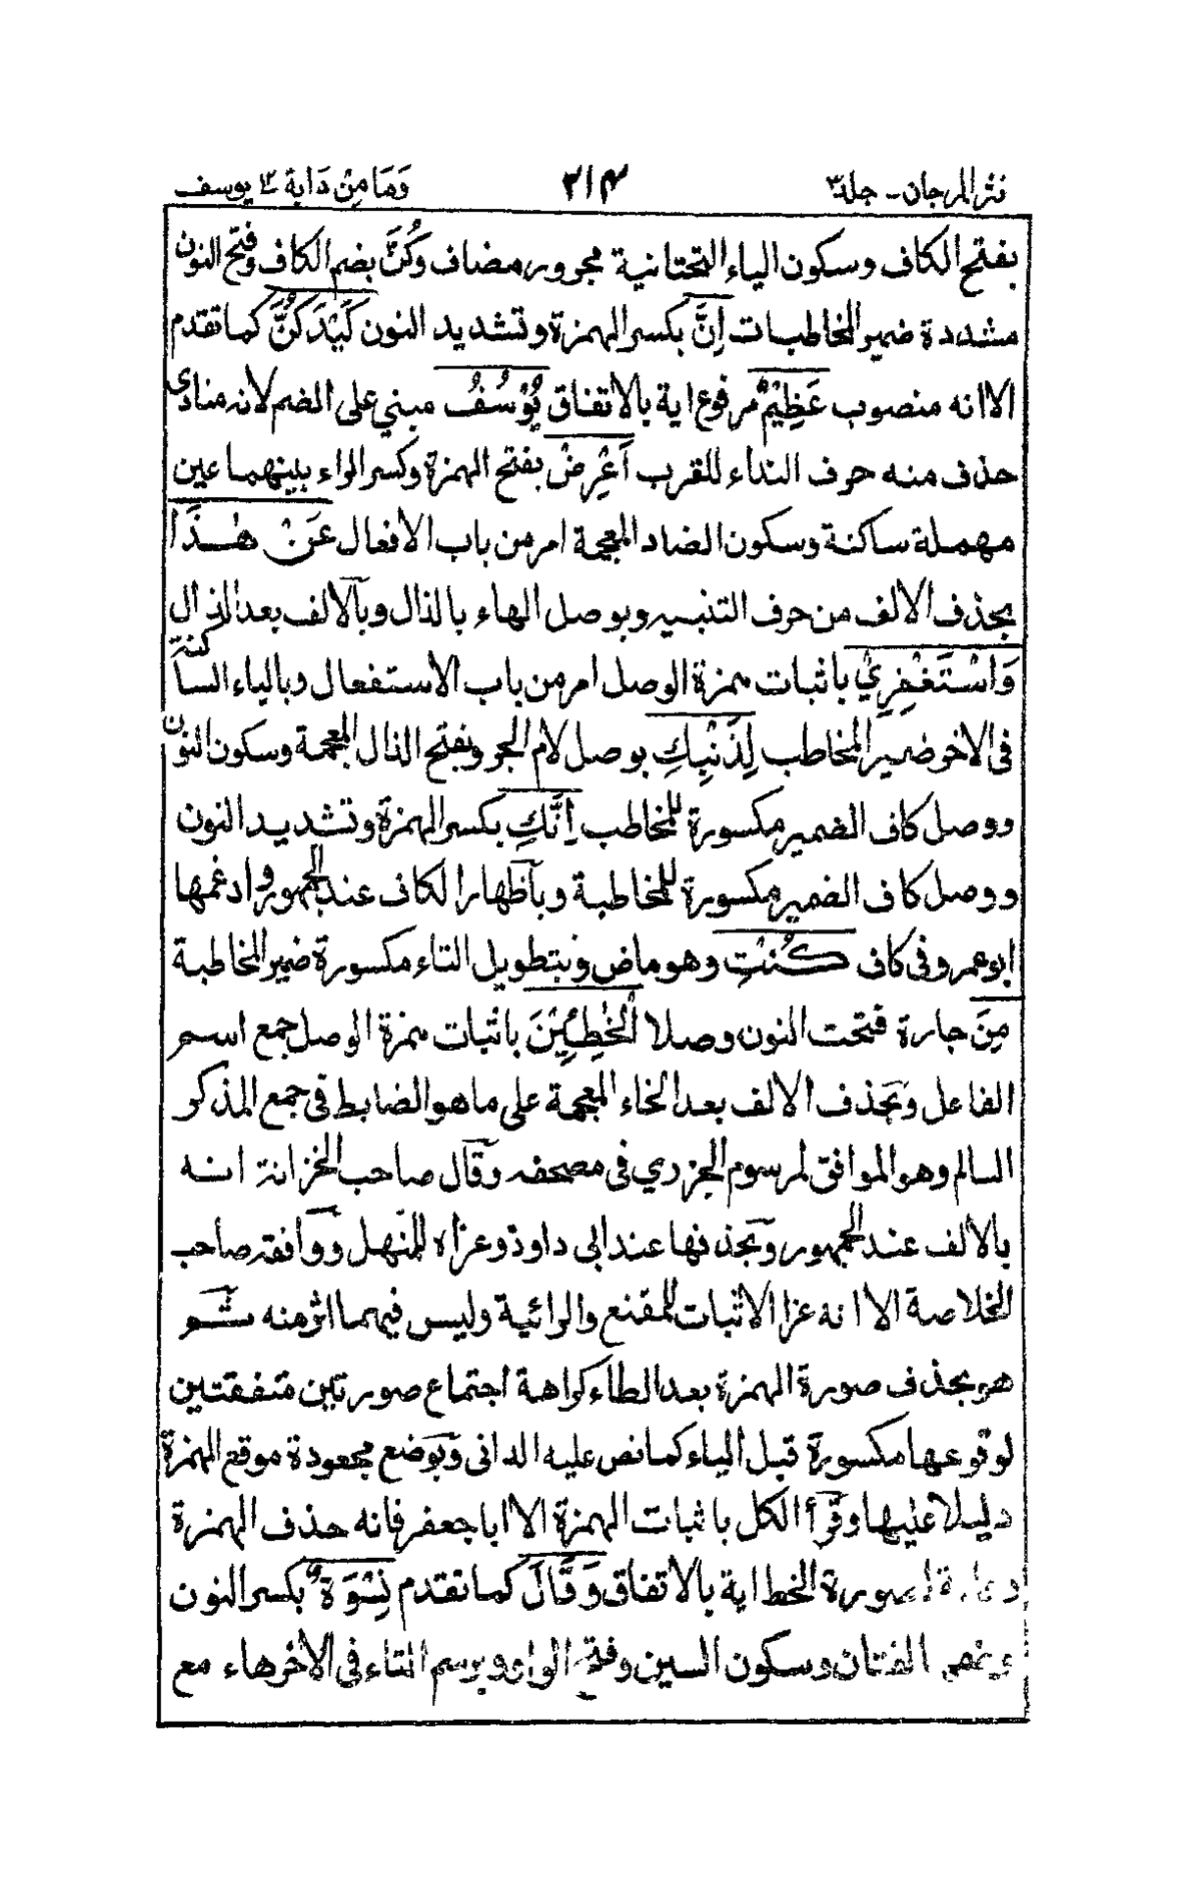 نثر المرجان - جلد ٣
٣١٤
وَمَا مِنْ دَابة ١٢ يوسف
بفتح الكاف وسكون الياء التحتانية مجرور مضاف وَكُنَّ بضم الكاف وفتح النون
مشددة ضمير المخاطبات اِنَّ بكسر الهمزة وتشديد النون كَيْدَكُنَّ كما تقدم
الا انه منصوب عَظِيْمٌ مرفوع اية بالاتفاق يُوْسُفُ مبني على الضم لانه منادى
حذف منه حرف النداء للقرب اَعْرِضْ بفتح الهمزة وكسر الراء بينهما عين
مهملة ساكنة وسكون الضاد المعجمة امر من باب الافعال عَنْ هٰذَا
بحذف الالف من حرف التنبيه وبوصل الهاء بالذال وبالالف بعد الذال
وَاسْتَغْفِرِيْ باثبات همزة الوصل امر من باب الاستفعال وبالياء الساكنة
فى الاخر ضمير المخاطب لِذَنْبِكِ بوصل لام الجر وبفتح الذال المعجمة وسكون النون
ووصل كاف الضمير مكسورة للمخاطب اِنَّكِ بكسر الهمزة وتشديد النون
ووصل كاف الضمير مكسورة للمخاطبة وباظهار الكاف عند الجمهور وادغمها
ابو عمرو فى كاف كُنْتِ وهو ماض وبتطويل التاء مكسورة ضمير المخاطبة
مِنَ جارة فتحت النون وصلا الْخٰطِئِيْنَ باثبات همزة الوصل جمع اسم
الفاعل وبحذف الالف بعد الخاء المعجمة على ما هو الضابط فى جمع المذكر
السالم وهو الموافق لمرسوم الجزري فى مصحفه وقال صاحب الخزانة انه
بالالف عند الجمهور وبحذفها عند ابى داود وعزاه للمنهل ووافقه صاحب
الخلاصة الا انه عزا الاثبات للمقنع والرائية وليس فيهما اثر منه ثم
هو بحذف صورة الهمزة بعد الطاء كراهة اجتماع صورتين متفقتين
لوقوعها مكسورة قبل الياء كما نص عليه الدانى وبوضع مجعودة موقع الهمزة
دليلا عليها وقرأ الكل باثبات الهمزة الا ابا جعفر فانه حذف الهمزة
لصورة الخط اية بالاتفاق وَقَالَ كما تقدم نِسْوَةٌ بكسر النون
الفتان وسكون السين وفتح الواو وبرسم التاء فى الاخر هاء مع